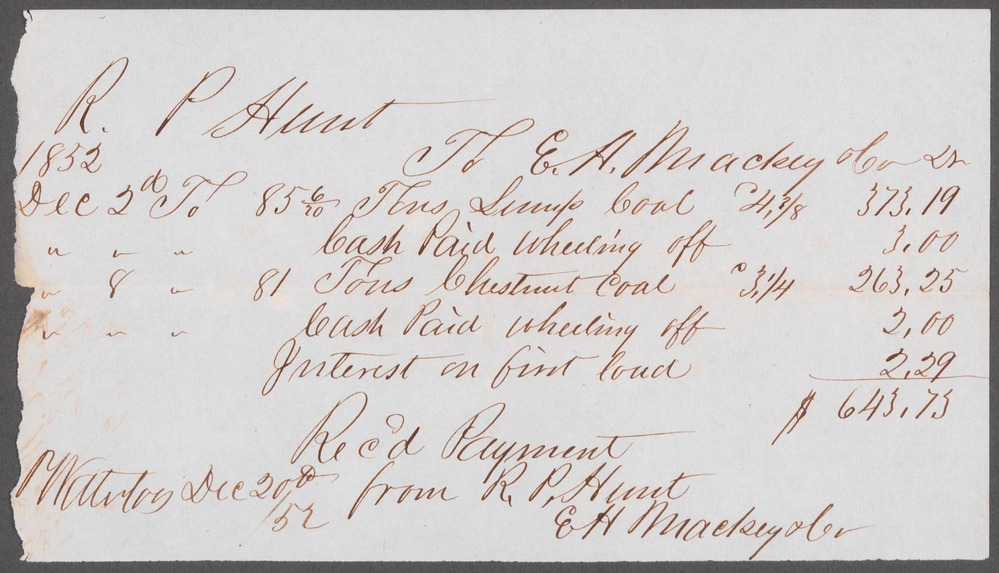 R. P Hunt
1852 To E. H. Mackey & Co Dr
Dec 2d To 85 6/20 Tons Lump Coal @ 4,3/8 373,19
" " " Cash Paid wheeling off 3,00
" 8 " 81 Tons Chestnut Coal @ 3,1/4 263,25
" " " Cash Paid wheeling off 2,00
Interest on first load 2,29
$ 643,73
Rec'd Payment
Waterloo Dec 20th from R. P. Hunt
/52 E H Mackey & Co